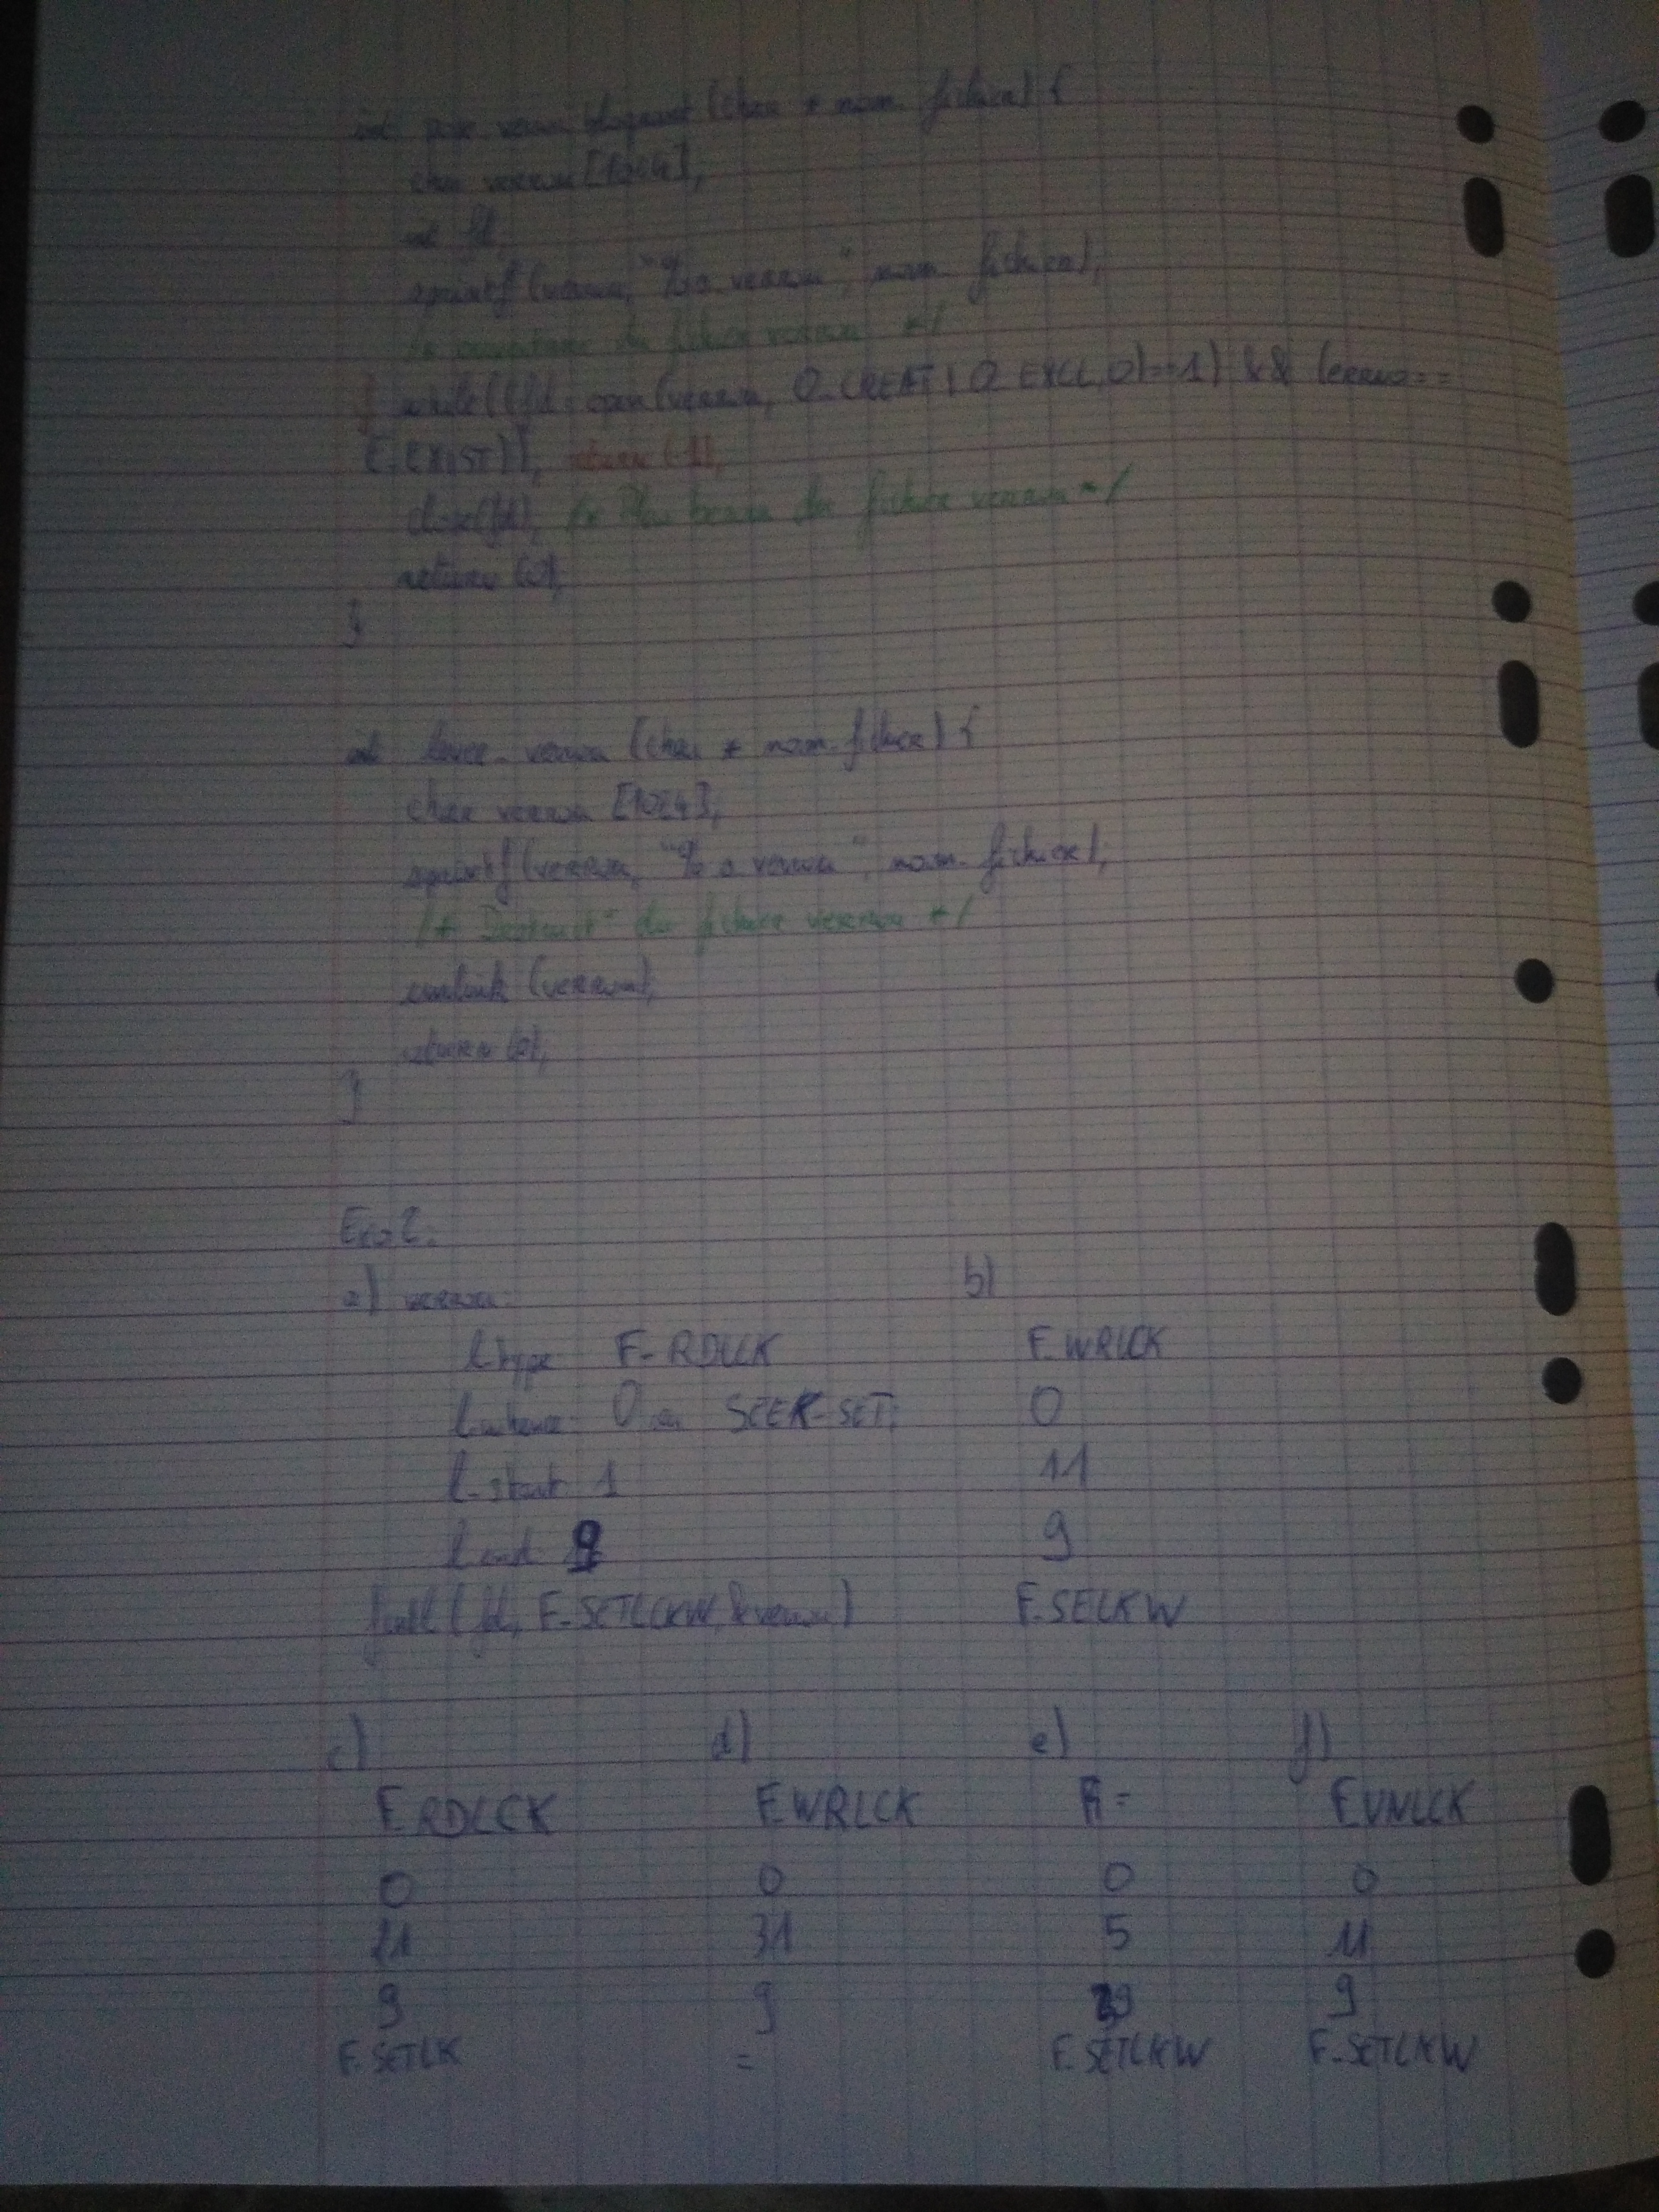 int pose verrou bloquant (char * nom_fichier) {
char verrou [1024];
int fd;
sprintf (verrou, "%s.verrou", nom_fichier);
du fichier verrou */
while (((fd = open (verrou, O_CREAT | O_EXCL, 0) == -1) && (errno ==
E_EXIST)); return (-1);
close(fd); /* Plus besoin du fichier verrou */
return (0);
}
int lever_verrou (char * nom_fichier) {
char verrou [1024];
sprintf (verrou, "%s.verrou", nom_fichier);
/* Destruct° du fichier verrou */
unlink (verrou);
return (0);
}
Exo 2.
a) verrou. b)
l_type F_RDLCK F_WRLCK
l_whence 0 ou SEEK_SET; 0
l_start 1 11
9 9
fcntl (fd, F_SETLCKW, &verrou) F_SELKW
c) d) e) f)
F_RDLCK F_WRLCK = F_UNLCK
0 0 0 0
21 31 5 11
9 9 9
F_SETLK = F_SETLKW F_SETLKW